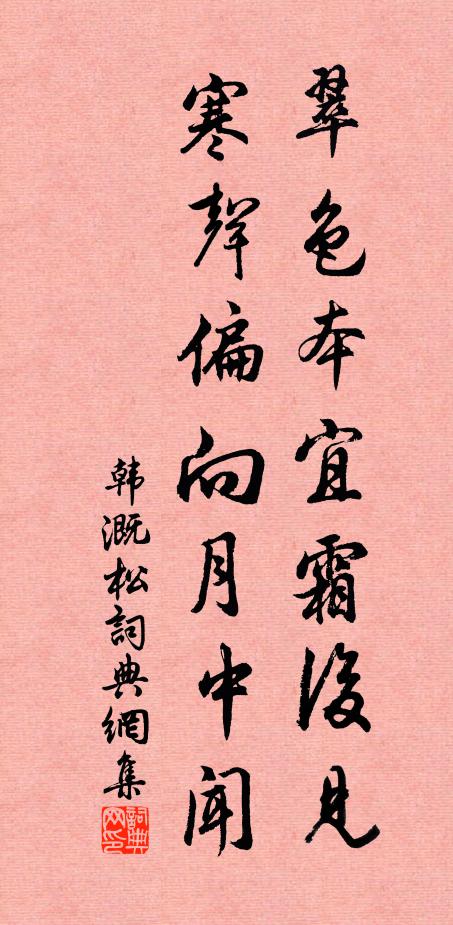 翠色本宜霜後見
寒聲偏向月中聞
韩溉松詞典網集
詞典网印